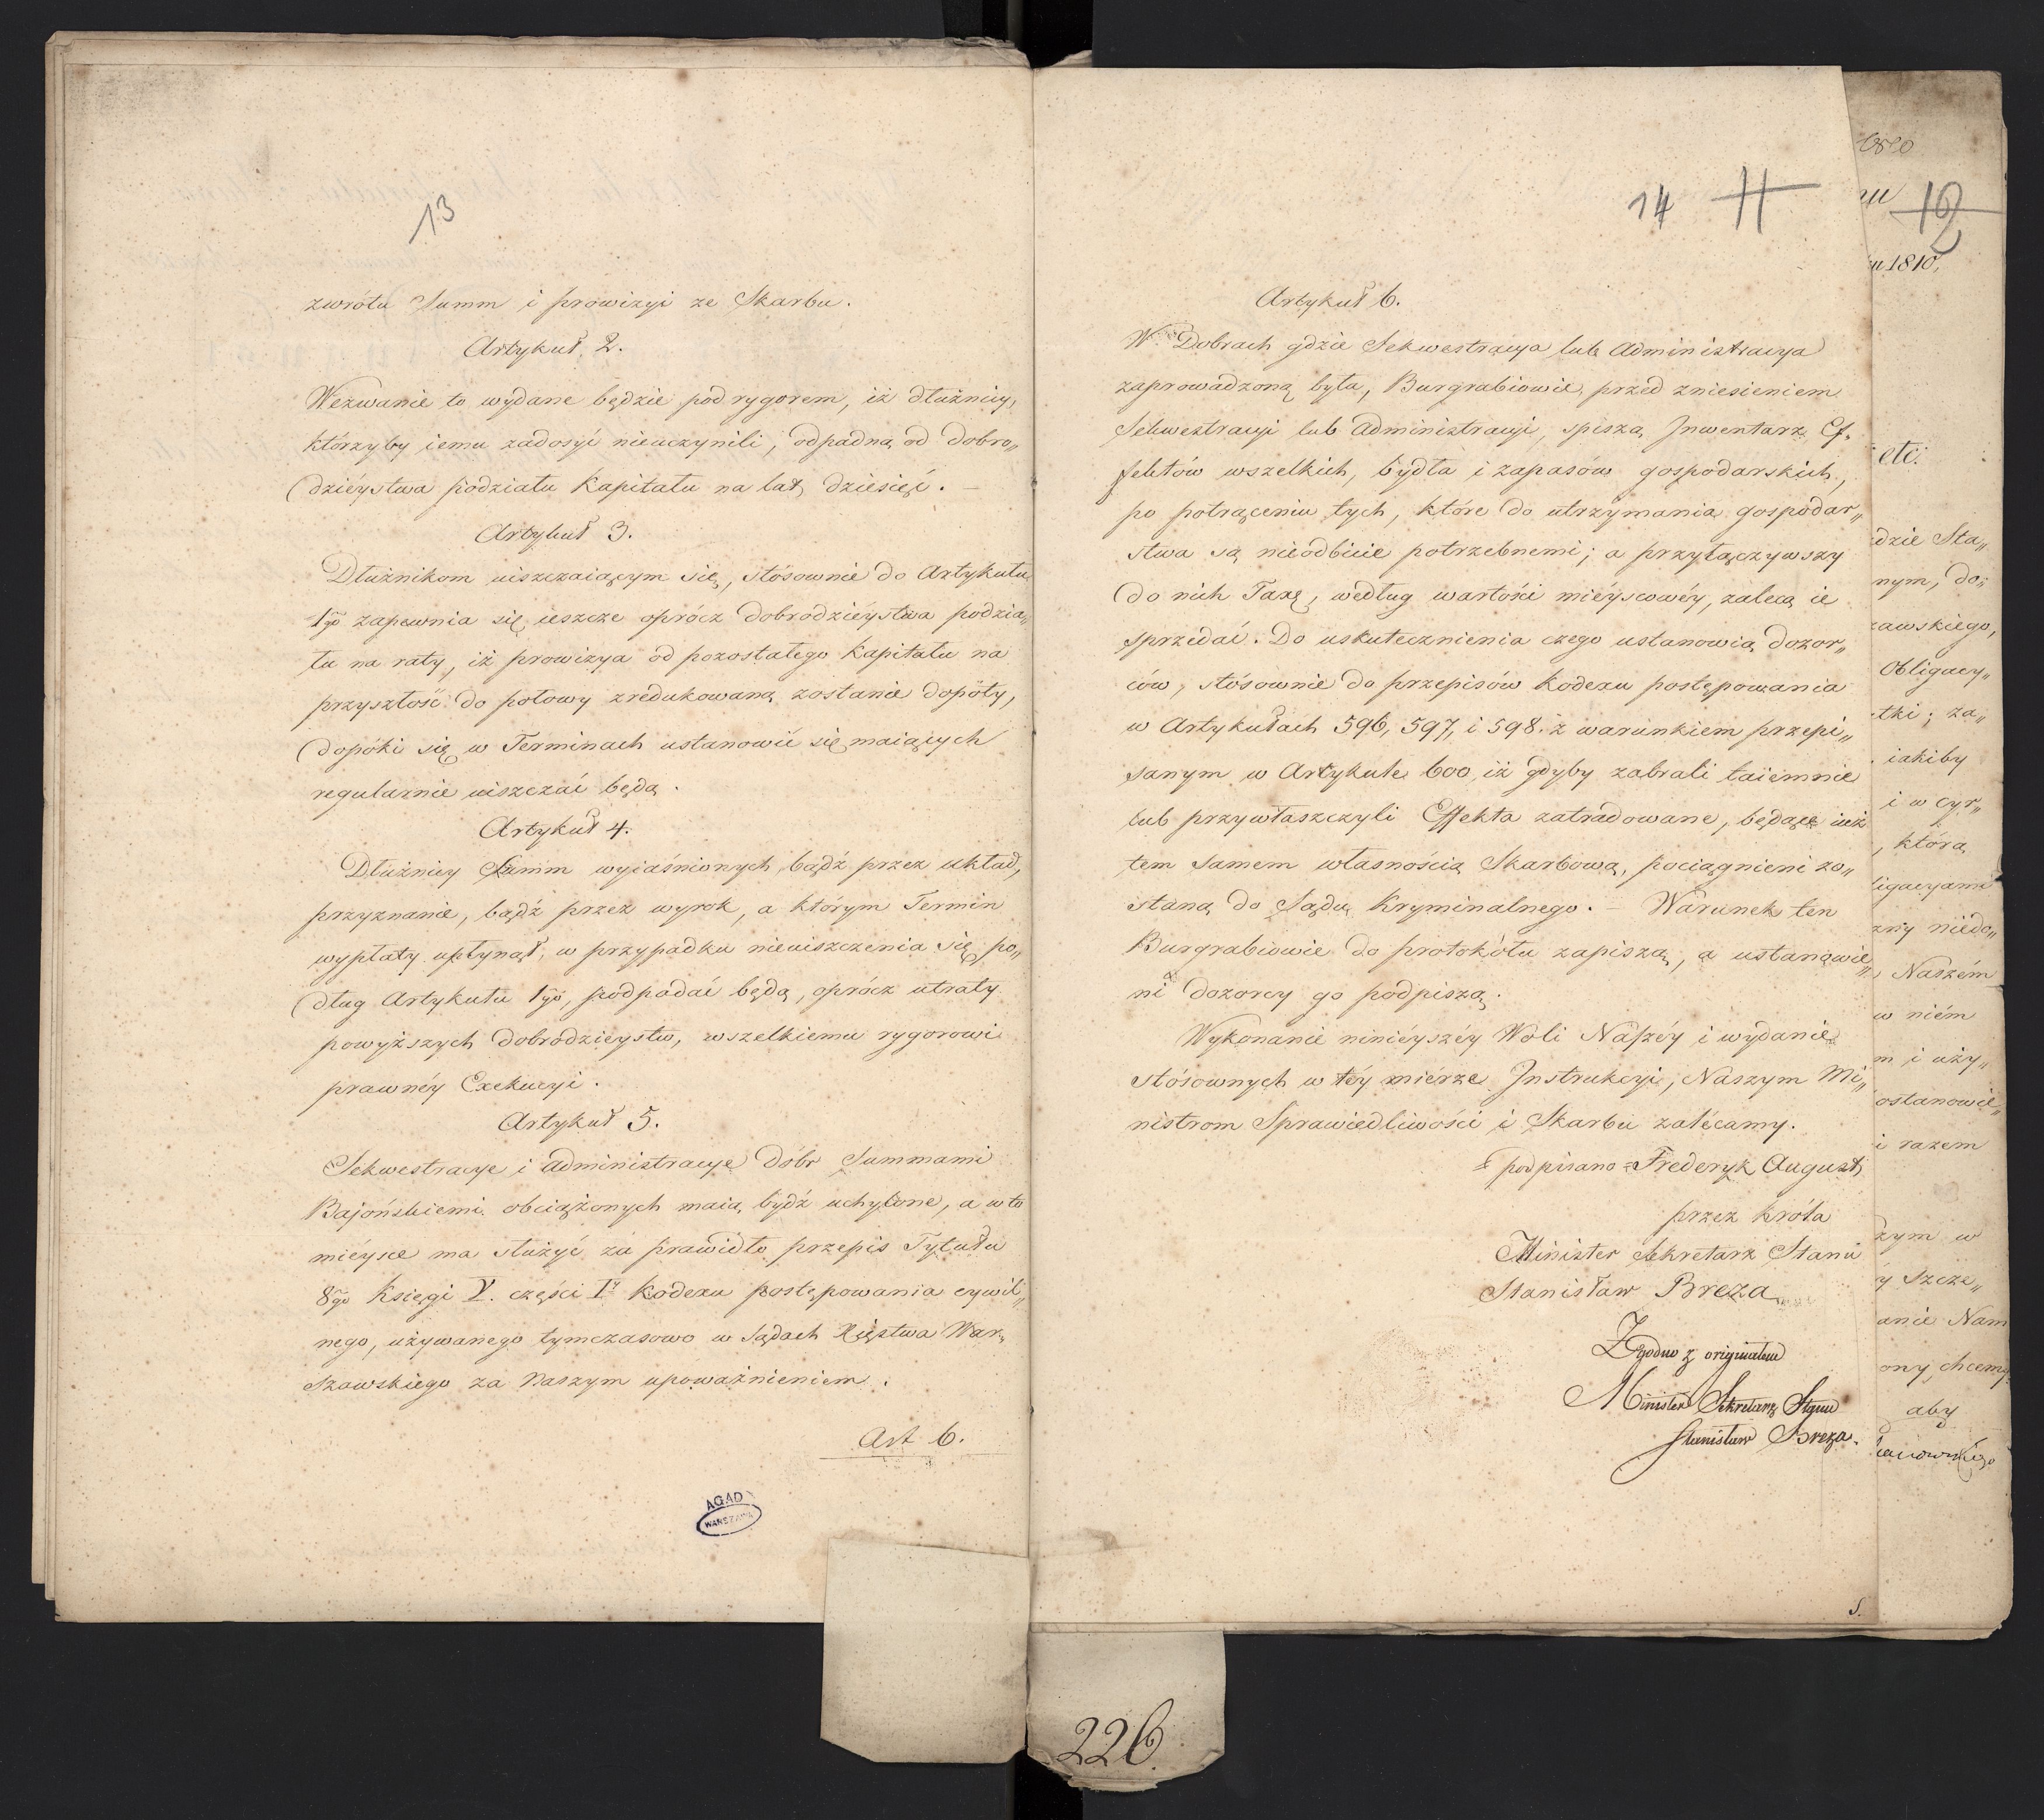 13
zwrótu Summ i prowizyi ze Skarbu.
Artykuł 2.
Wezwanie to wydane będzie pod rygorem, iż dłużnicy,
którzyby iemu zadosyć nieuczynili, odpadną od dobro„
dziéystwa podziału Kapitału na lat dziesięć. —
Artykuł 3.
Dłużnikom uiszczaiącym się, stósownie do Artykułu
1go zapewnia się ieszcze oprócz dobrodziéystwa podzia„
łu na raty, iż prowizya od pozostałego Kapitału na
przyszłość do połowy zredukowaną zostanie dopóty,
dopóki się w Terminach ustanowić się maiących
regularnie uiszczać będą.
Artykuł 4.
Dłużnicy Summ wyiaśnionych, bądź przez układ,
przyznanie, bądź przez wyrok, a którym Termin
wypłaty upłynął, w przypadku nieuiszczenia się po„
dług Artykułu 1go, podpadać będą, oprócz utraty
powyższych dobrodzieystw, wszelkiemu rygorowi
prawnéy Exekucyi.
Artykuł 5.
Sekwestracye i administracye dóbr Summami
Bajońskiemi obciążonych maią bydź uchylone, a w to
miéysce ma służyć za prawidło przepis Tytułu
8go Księgi V. części Iy Kodexu postępowania cywil„
nego, używanego tymczasowo w Sądach Xięstwa War„
szawskiego za Naszym upoważnieniem.
Art 6.
AGAD
WARSZAWA
14 11
Artykuł 6.
W Dobrach gdzie Sekwestracya lub Administracya
zaprowadzoną była, Burgrabiowie, przed zniesieniem
Sekwestracyi lub Administracyi, spiszą Inwentarz Ef„
fektów wszelkich, bydła i zapasów gospodarskich,
po potrąceniu tych, które do utrzymania gospodar„
stwa są nieodbicie potrzebnemi; a przyłączywszy
do nich Taxę, według wartości miéyscowéy, zalecą ie
sprzedać. Do uskutecznienia czego ustanowią dozor„
ców, stósownie do przepisów Kodexu postępowania
w Artykułach 596, 597, i 598. z warunkiem przepi„
sanym w Artykule 600, iż gdyby zabrali taiemnie
lub przywłaszczyli Effekta zatradowane, będące iuż
tem samem własnością Skarbową, pociągnieni zo„
staną do Sądu Kryminalnego. — Warunek ten
Burgrabiowie do protokółu zapiszą, a ustanowie„
ni dozorcy go podpiszą.
Wykonanie niniéyszéy Woli Naszéy i wydanie
stósownych w téy miérze Instrukcyi, Naszym Mi„
nistrom Sprawiedliwości i Skarbu zalécamy.
podpisano = Frederyk August
przez Króla
Minister Sekretarz Stanu
Stanisław Breza
Zgodno z originałem
Minister Sekretarz Stanu
Stanisław Breza.
S.
12
1810,
etc:
dzie Sta„
nym, do„
zawskiego,
Obligacy„
tki; za„
iakiby
i w cyr„
, która
ligacyami
zny niedo„
Naszém
w niém
m i uży„
ostanowie„
i razem
żym w
y szcze„
anie Nam
ony, chcemy
aby
226.